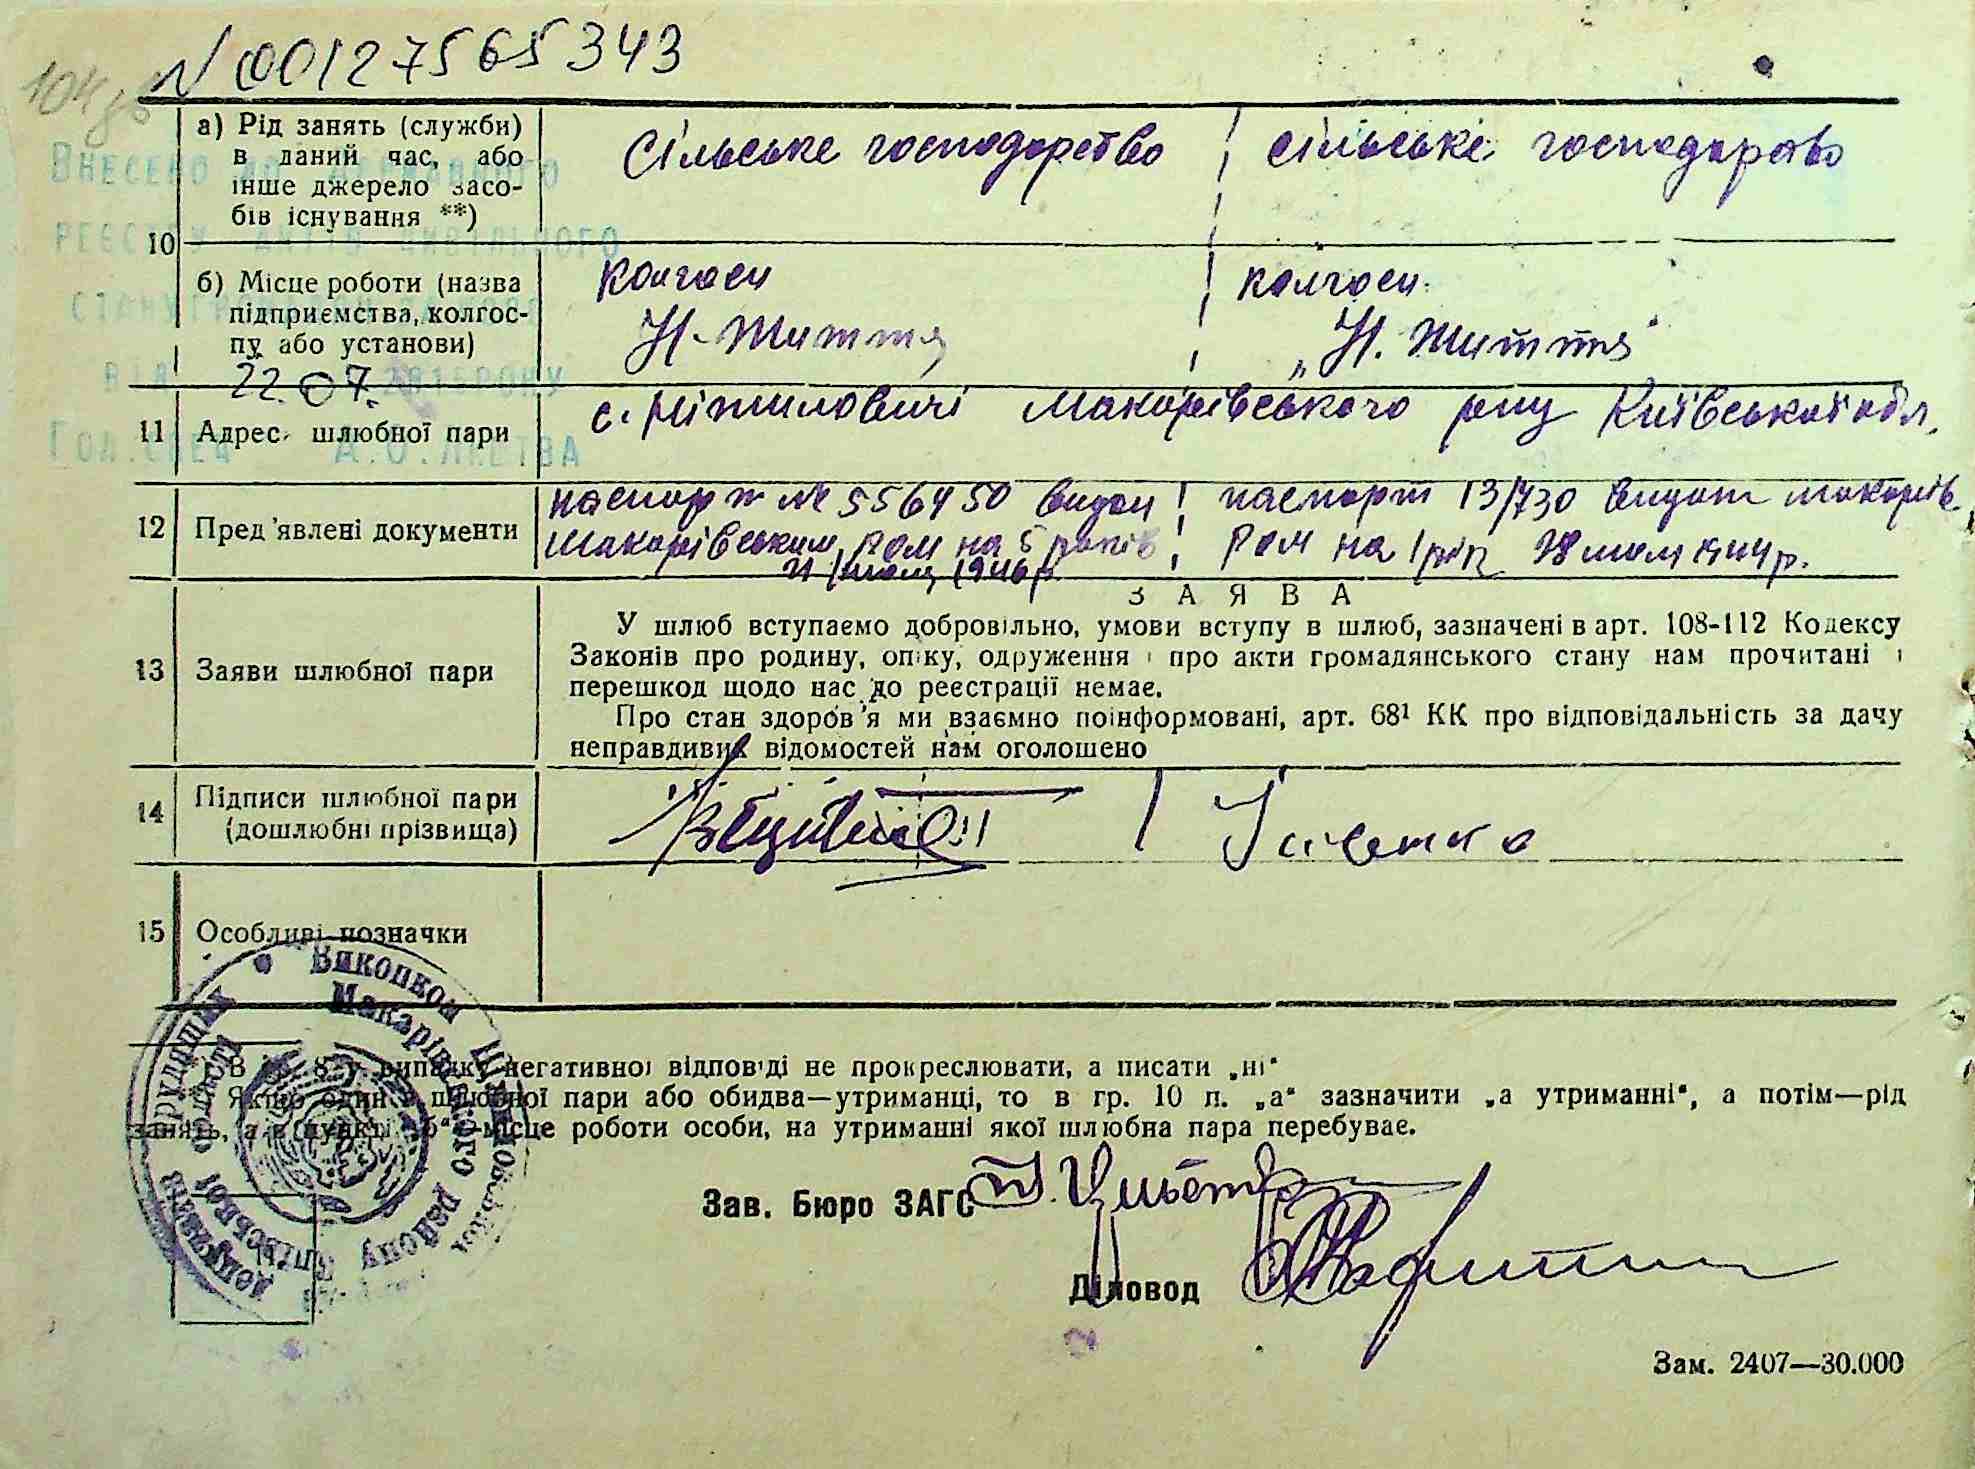 N 00127565343
Внесено до державного
реєстру актів цивільного
22.07.
а) Рід занять (служби)
в даний час, або
інше джерело засо-
бів існування **)
Сільське господарство
сільське господарство
10
б) Місце роботи (назва
підприємства, колгос-
пу або установи)
колгосп
Н. Життя
колгосп
„Н. Життя"
11 Адрес шлюбної пари
Макарівського р-ну Київської обл.
12 Пред'явлені документи
паспорт № 556450 видан
Макарівським РОМ на 5 років
1946 р.
паспорт 13/730 видан Макарів.
РОМ на 1 рік 1944 р.
ЗАЯВА
13 Заяви шлюбної пари
У шлюб вступаємо добровільно, умови вступу в шлюб, зазначені в арт. 108-112 Кодексу
Законів про родину, опіку, одруження і про акти громадянського стану нам прочитані і
перешкод щодо нас до реєстрації немає.
Про стан здоров'я ми взаємно поінформовані, арт. 68¹ КК про відповідальність за дачу
неправдивих відомостей нам оголошено
14 Підписи шлюбної пари
(дошлюбні прізвища)
15 Особливі позначки
Виконком
Макарівського району
області
В 8 у випадку негативної відповіді не прокреслювати, а писати „ні"
Якщо один з шлюбної пари або обидва—утриманці, то в гр. 10 п. „а" зазначити „а утриманні", а потім—рід
занять, а в пункті „б"—місце роботи особи, на утриманні якої шлюбна пара перебуває.
Зав. Бюро ЗАГС
Діловод
Зам. 2407—30.000